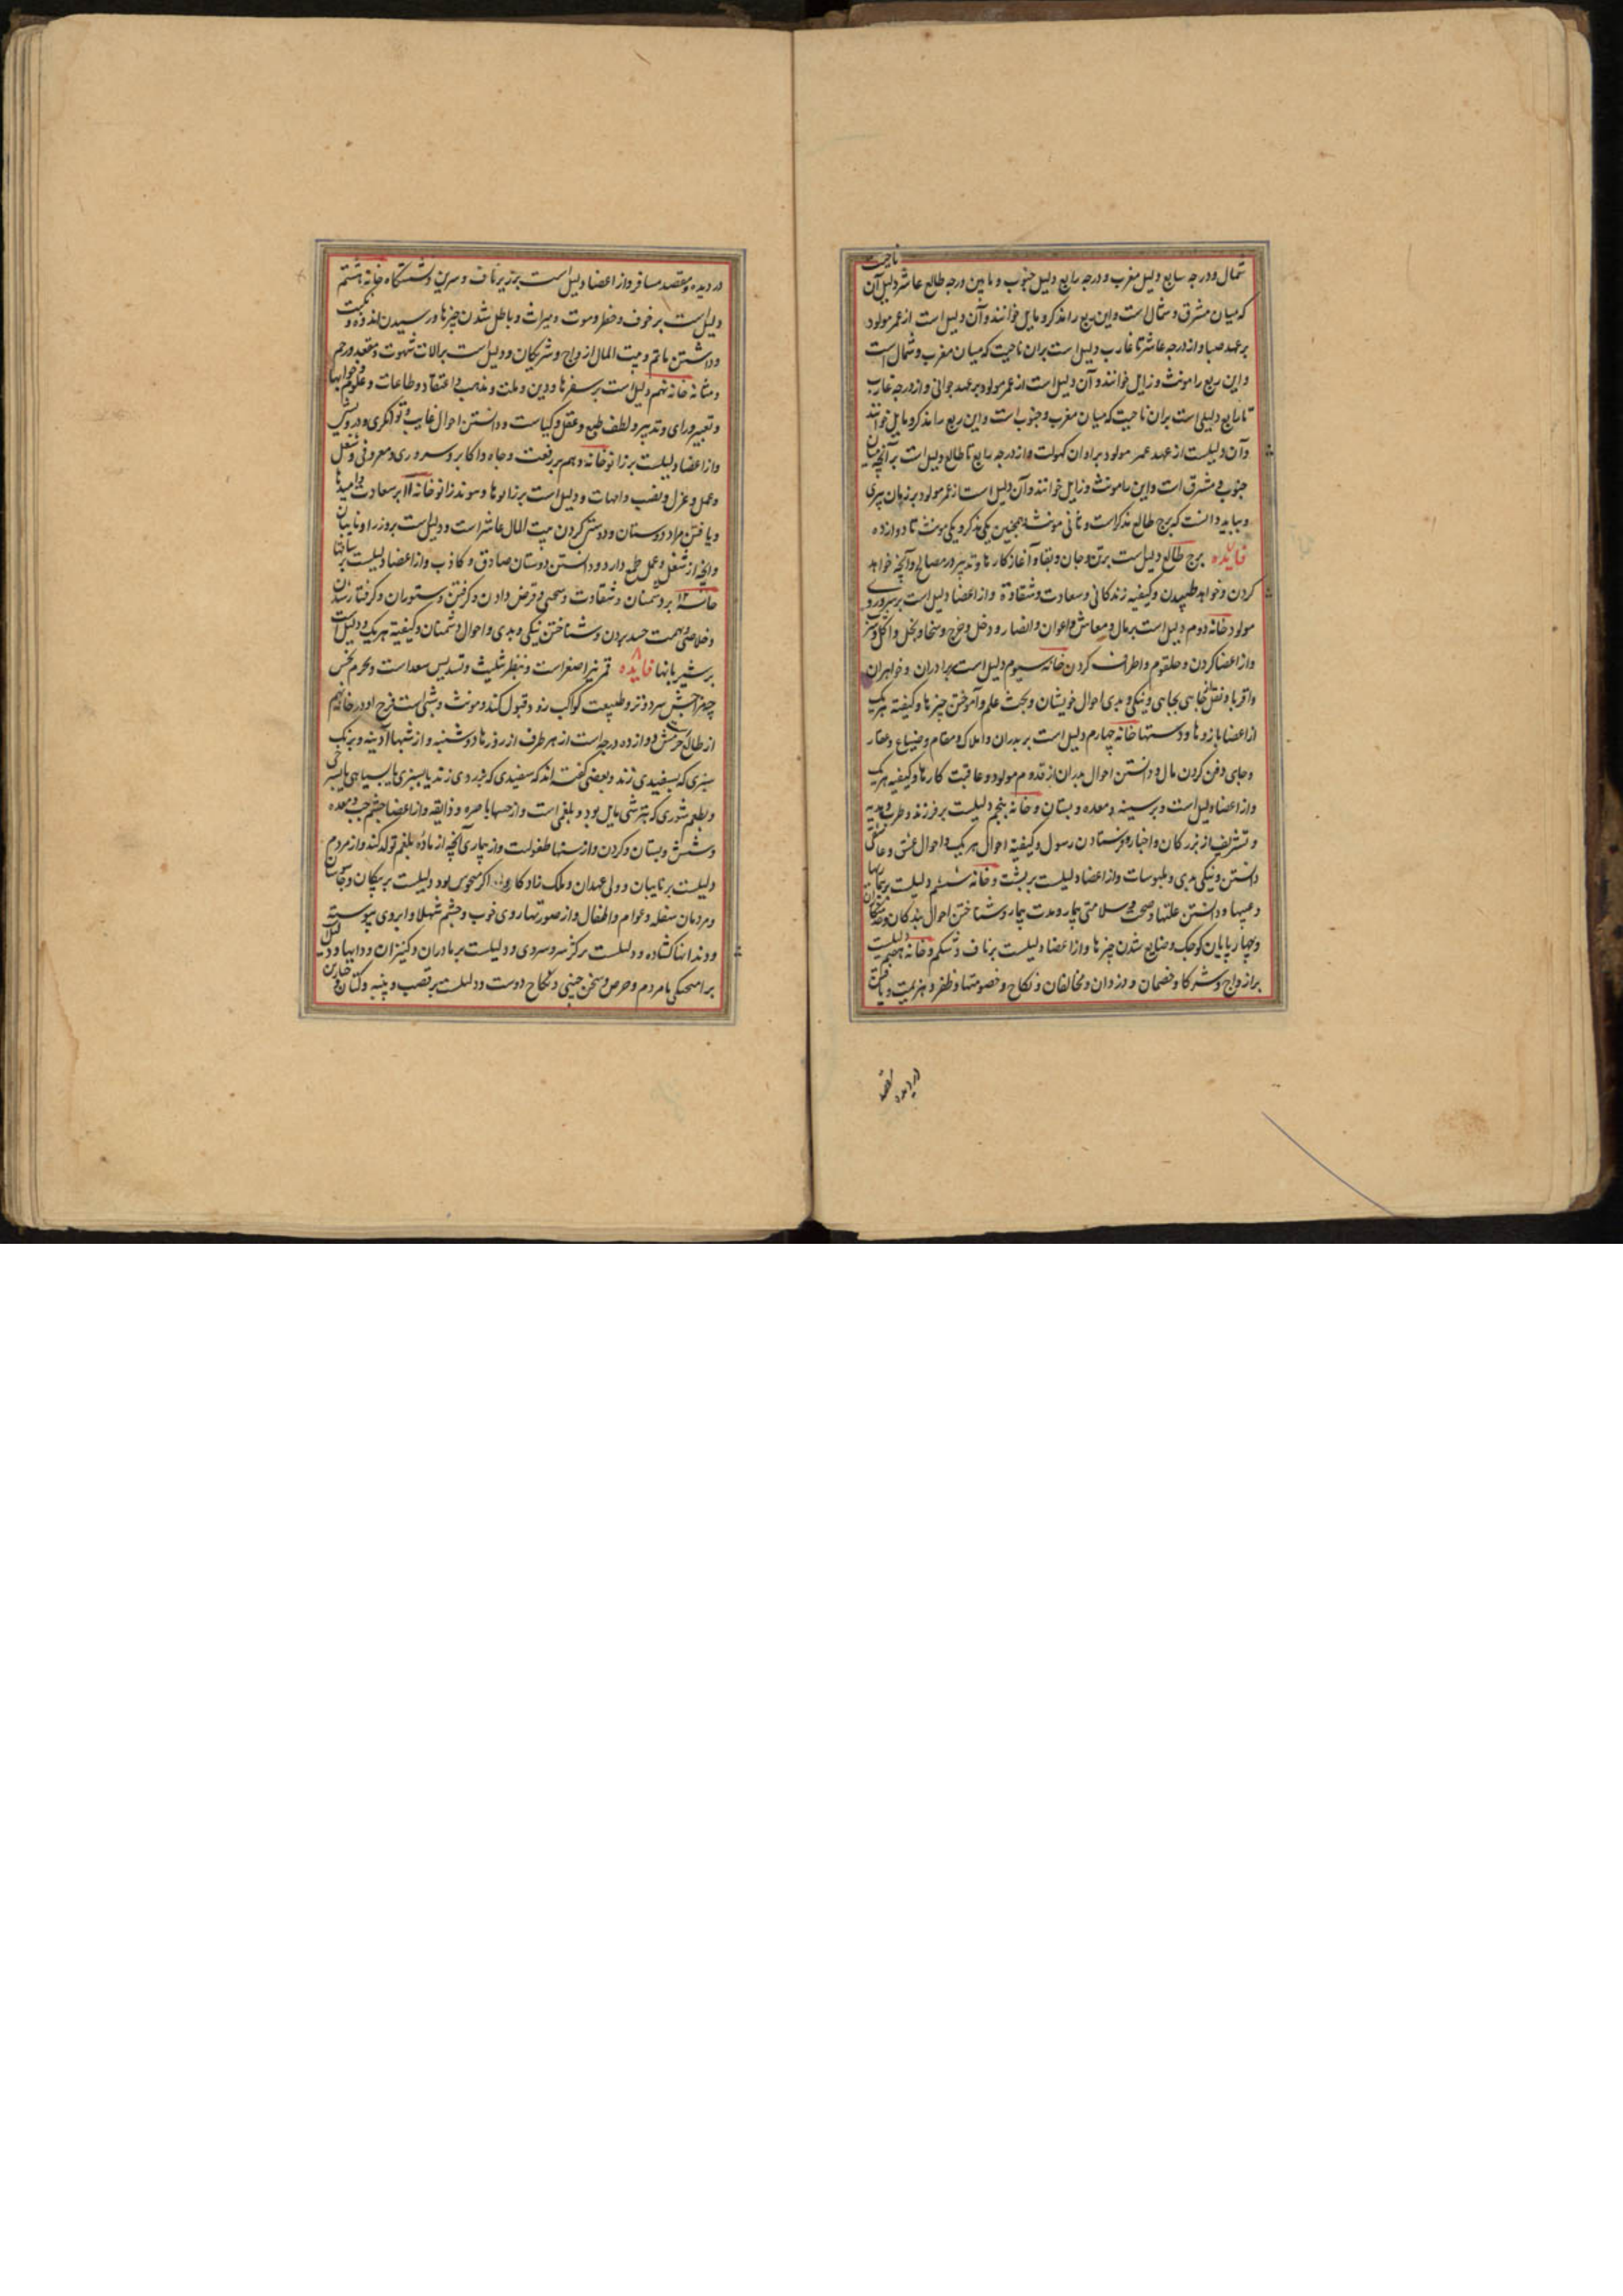 شمال و درجه سابع دلیل مغرب و درجه رابع دلیل جنوب و مابین درجه طالع عاشر دلیل آن ناحیت
که میان مشرق و شمال است و این ربع را مذکر و مایل خوانند و آن دلیل است از عمر مولود
بر عهد صبا و از درجه عاشر تا غارب دلیل است بران ناحیت که میان مغرب و شمال است
و این ربع را مونث و زایل خوانند و آن دلیل است از عمر مولود بر عهد جوانی و از درجه غارب
تا رابع دلیل است بران ناحیت که میان مغرب و جنوب است و این ربع را مذکر و مایل خوانند
و آن دلیلست از عهد عمر مولود بر اوان کهولت و از درجه رابع تا طالع دلیل است بر آنچه میان
جنوب و مشرق است و این را مونث و زایل خوانند و آن دلیل است از عمر مولود بر زمان پیری
و بباید دانست که برج طالع مذکر است و ثانی مونث و همچنین یکی مذکر و یکی مونث تا دوازده
فایده برج طالع دلیل است بر تن و جان و بقا و آغاز کارها و تدبیر در مصالح و آنچه خواهد
کردن و خواهد طلبیدن و کیفیه زندکانی و سعادت و شقاوة و از اعضا دلیل است بر سر و روی
مولود خانه دوم دلیل است بر مال و معاش و اعوان و انصار و دخل و خرج و سخا و بخل و اکل و
و از اعضا کردن و حلقوم و اطراف کردن خانه سیوم دلیل است بر برادران و خواهران
و اقربا و نقل جایی بجایی و نیکی و بدی احوال خویشان و بحث علم و آموختن چیزها و کیفیه هر یک
از اعضا بازوها و دستها خانه چهارم دلیل است بر پدران و املاک و مقام و ضیاع و عقار
و جای دفن کردن مال و دانستن احوال پدران از قدوم مولود و عاقبت کارها و کیفیه هر یک
و از اعضا دلیل است بر سینه و معده و پستان و خانه پنجم دلیلست بر فرزند و طرب و هدیه
و تشریف از بزرکان و اخبار و فرستادن رسول و کیفیة احوال هر یک و احوال عشق و عاشقی
دانستن و نیکی بدی و ملبوسات و از اعضا دلیلست بر پشت و خانه ششم دلیلست بر بیماریها
و عیبها و دانستن علتها و صحت و سلامتی بیمار و مدت بیمار و شناختن احوال بندکان و
و چهارپایان کوچک و ضایع شدن چیزها و از اعضا دلیلست بر ناف و شکم و خانه هفتم دلیلست
بر ازواج و شرکا و خصمان و دزدان و مخالفان و نکاح و خصومتها و ظفر و هزیمت و
دزدیده و مقصد
دزدیده و مقصد مسافر و از اعضا دلیل است بر زیر ناف و سرین و نشستگاه خانه هشتم
دلیل است بر خوف و خطر و موت و میراث و باطل شدن چیزها و رسیدن اندوه و نکبت
و داشتن ماتم و بیت المال ازواج و شریکان و دلیل است بر آلات شهوت و مقعد و رحم
و مثانه خانه نهم دلیل است بر سفرها و دین و ملت و مذهب و اعتقاد و طاعات و علوم و خوابها
و تعبیر و رای و تدبیر و لطف طبع و عقل و کیاست و دانستن احوال غایب و توانکری و درویشی
و از اعضا دلیلست بر زانو خانه دهم بر رفعت و جاه و اکابر و سروری و معروفی و شغل
و عمل و عزل و نصب و امهات و دلیل است بر زانوها و سوند زانو خانه ۱۱ بر سعادت و امیدها
و یافتن مراد دوستان و دوستی کردن بیت المال عاشر است و دلیل است بر وزرا و نایبان
و آنچه از شغل و عمل طمع دارد و دانستن دوستان صادق و کاذب و از اعضا دلیلست بر ساقها
خانه ۱۲ بر دشمنان و شقاوت و سختی و قرض دادن و کرفتن و ستوران و کرفتار شدن
و خلاصی و تهمت حسد بردن و شناختن نیکی و بدی و احوال دشمنان و کیفیة هر یک و دلیل است
بر شیر بانها فایده ۸ قمر نیر اصغر است و بنظر تثلیث و تسدیس سعد است و نحس
مزاجش سرد و تر و طبیعت کواکب زود قبول کند و مونث و شبی است فرح او در خانه سیم
از طالع جرمش دوازده درجه است از هر طرف از روزها دوشنبه و از شبها آدینه و برنک
سبزی که بسفیدی زند و بعضی کفته اند که سفیدی که بزردی زند یا بسبزی یا بسیاهی یا بسرخی
و بطعم شوری که بترشی مایل بود و بلغمی است و از حسها باصره و ذایقه و از اعضا چشم چپ و معده
و شش و پستان و کردن و از سنها طفولت و از بیماری آنچه از ماده بلغم تولد کند و از مردم
دلیلست بر نایبان و ولی عهدان و ملک زاد کار و اکر منحوس بود دلیلست بر پیکان و جاسوسان
و مردمان سفله و عوام و اطفال و از صورتها روی خوب و چشم شهلا و ابروی پیوسته
و دندانها کشاده و دلیلست بر کژ سر و سروی و دلیلست بر مادران و کنیزان و دایها و دلیل
بر آمیختگی با مردم و حرص و سخن چینی و نکاح دوست و دلیلست بر قصب و پنبه و کتان و